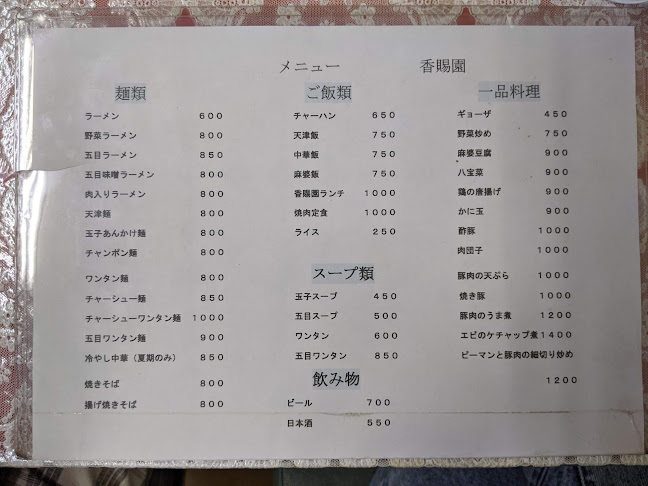 メニュー 香賜園
麺類
ラーメン 600
野菜ラーメン 800
五目ラーメン 850
五目味噌ラーメン 800
肉入りラーメン 800
天津麺 800
玉子あんかけ麺 800
チャンポン麺 800
ワンタン麺 800
チャーシュー麺 850
チャーシューワンタン麺 1000
五目ワンタン麺 900
冷やし中華(夏期のみ) 850
焼きそば 800
揚げ焼きそば 800
ご飯類
チャーハン 650
天津飯 750
中華飯 750
麻婆飯 750
香賜園ランチ 1000
焼肉定食 1000
ライス 250
スープ類
玉子スープ 450
五目スープ 500
ワンタン 600
五目ワンタン 850
飲み物
ビール 700
日本酒 550
一品料理
ギョーザ 450
野菜炒め 750
麻婆豆腐 900
八宝菜 900
鶏の唐揚げ 900
かに玉 900
酢豚 1000
肉団子 1000
豚肉の天ぷら 1000
焼き豚 1000
豚肉のうま煮 1200
エビのケチャップ煮1400
ピーマンと豚肉の細切り炒め
1200